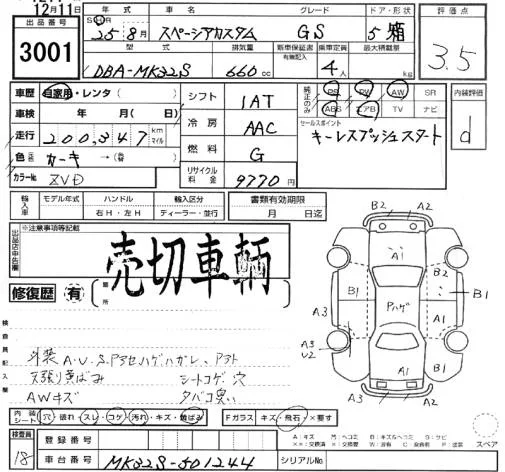 12月11日
出品番号
3001
年式 車名 グレード ドア・形状
25年8月 スペーシアカスタム GS 5 箱
型式 排気量 新車保証書 乗車定員 最大積載量
有無記入
DBA-MK32S 660cc 4人 kg
評価点
3.5
車歴 自家用・レンタ( )
車検 年 月( 日)
走行 200,347 km マイル
色 カーキ →(替 )
カラーNo. ZVD
シフト 1AT
冷房 AAC
燃料 G
リサイクル料金 9770円
純正のみ PS PW AW SR
ABS エアB TV ナビ
セールスポイント
キーレスプッシュスタート
内装評価
d
輸入車 モデル年式 ハンドル 輸入区分
右H・左H ディーラー・並行
書類有効期限
月 日迄
出品店申告欄
※注意事項等記載
売切車輌
修復歴 有
箇所
検査員記入欄
外装A.U.S.Pアセハゲハガレ、Pアト
天張り黄ばみ シートコゲ穴
AWキズ タバコ臭い
内装シート 穴・破れ・スレ・コゲ・汚れ・キズ・黄ばみ
Fガラス キズ・飛石・×要す
検査員 18
登録番号
車台番号 MK32S-501244
シリアルNo.
B2 A2
A1
A3 B2
B1 B1 B1
Pハゲ
A1
A3
U2
A1
A2 A3
スペア
A:キズ U:ヘコミ B:キズ&ヘコミ S:サビ